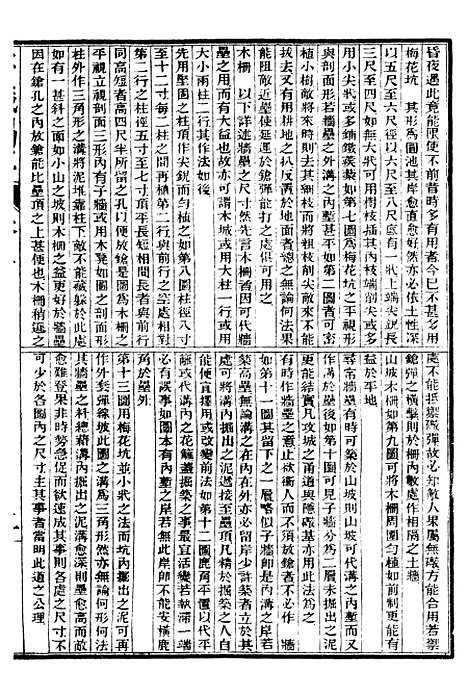 昏夜遇此竟能限使不前昔時多有用者今已不甚多用
梅花坑　其形爲圓池其岸愈直愈好然亦必依土性深
以五尺至六尺徑以六尺至八尺底有一狀上端尖銳長
三尺至四尺如無大狀可用樹枝插其內枝端削尖或多
用小尖狀或多鋪鐵蒺藜如第七圖爲梅花坑之平視形
與剖面形若爲牆壘外溝之內者塹甚平如第二圖者可密
植小樹敵將來時則去其細枝而將粗枝削尖敵不能
拔去又有用耕地之扒反置於地面者總之無論何法果
能阻敵近壘使延遲於鎗彈能打之處俱可用之
木柵　以下詳述牆壘之尺寸然先言木柵者因可代牆
壘之用而有大益也故亦可謂木城或用大柱一行或用
大小兩柱二行其作法如後
先用堅固之柱頂作尖銳而勻植之如第八圖柱徑八寸
至十二寸每二柱之間再植第二行與前行柱之處相對
第二行之柱徑五寸至七寸頂平長短相間長者與前行
同高短者高四尺半所留之孔以便放鎗是圖爲木柵之
平視立視剖面三形內有子牆或用木凳如圖之剖面形
柱外作三角形之溝將泥堆靠柱下敵不能藏躲於此處
如有一甚斜之面如小山之坡則木柵之益更好於牆壘
因在鎗孔之內放鎗能比壘頂之上甚便也木柵稍遜之
處不能抵禦礮彈故必知敵人果屬無礮方能合用若禦
鎗彈之橫擊則於柵內數處作相隔之土牆
山坡木柵如第九圖可將木柵周圍勻植如前制更能有
益於平地
尋常牆壘有時作於山坡則可代溝之內岸如無山坡可
作溝於壘後如第十圖可見子牆外分爲二層未掘出之泥
更能結實凡攻城之甬道與隱礮基亦用此法爲之
有時作牆壘之意止欲衞人而不用鎗則子牆不必作　牆
如第十一圖其掘之下一層略似子牆師是內溝之岸若
築高壘無論溝之在內在外亦必留岸少許築者立於其
處可將溝內掘出之泥遞接至壘頂凡精於掘築之人自
能便宜揮用或改變前法如第十二圖鹿角平置以代平
式梅花坑溝內之花籬蓋掘築之事最宜活變若執滯一端
必有誤事如圖本有內塹之岸若無此岸師不能安橫鹿
角於壘外
第十三圖用梅花坑並小狀之法而坑內掘出之泥可再
作外葬彈線坡此圖之溝爲三角形然亦無論何形何法
其牆壘之料總藉溝內掘出之泥溝愈深則壘愈高而敵
愈難登果非時勢急促而欲速成其事則各處之尺寸不
可少於各圖內之尺寸主其事者當明此道之公理